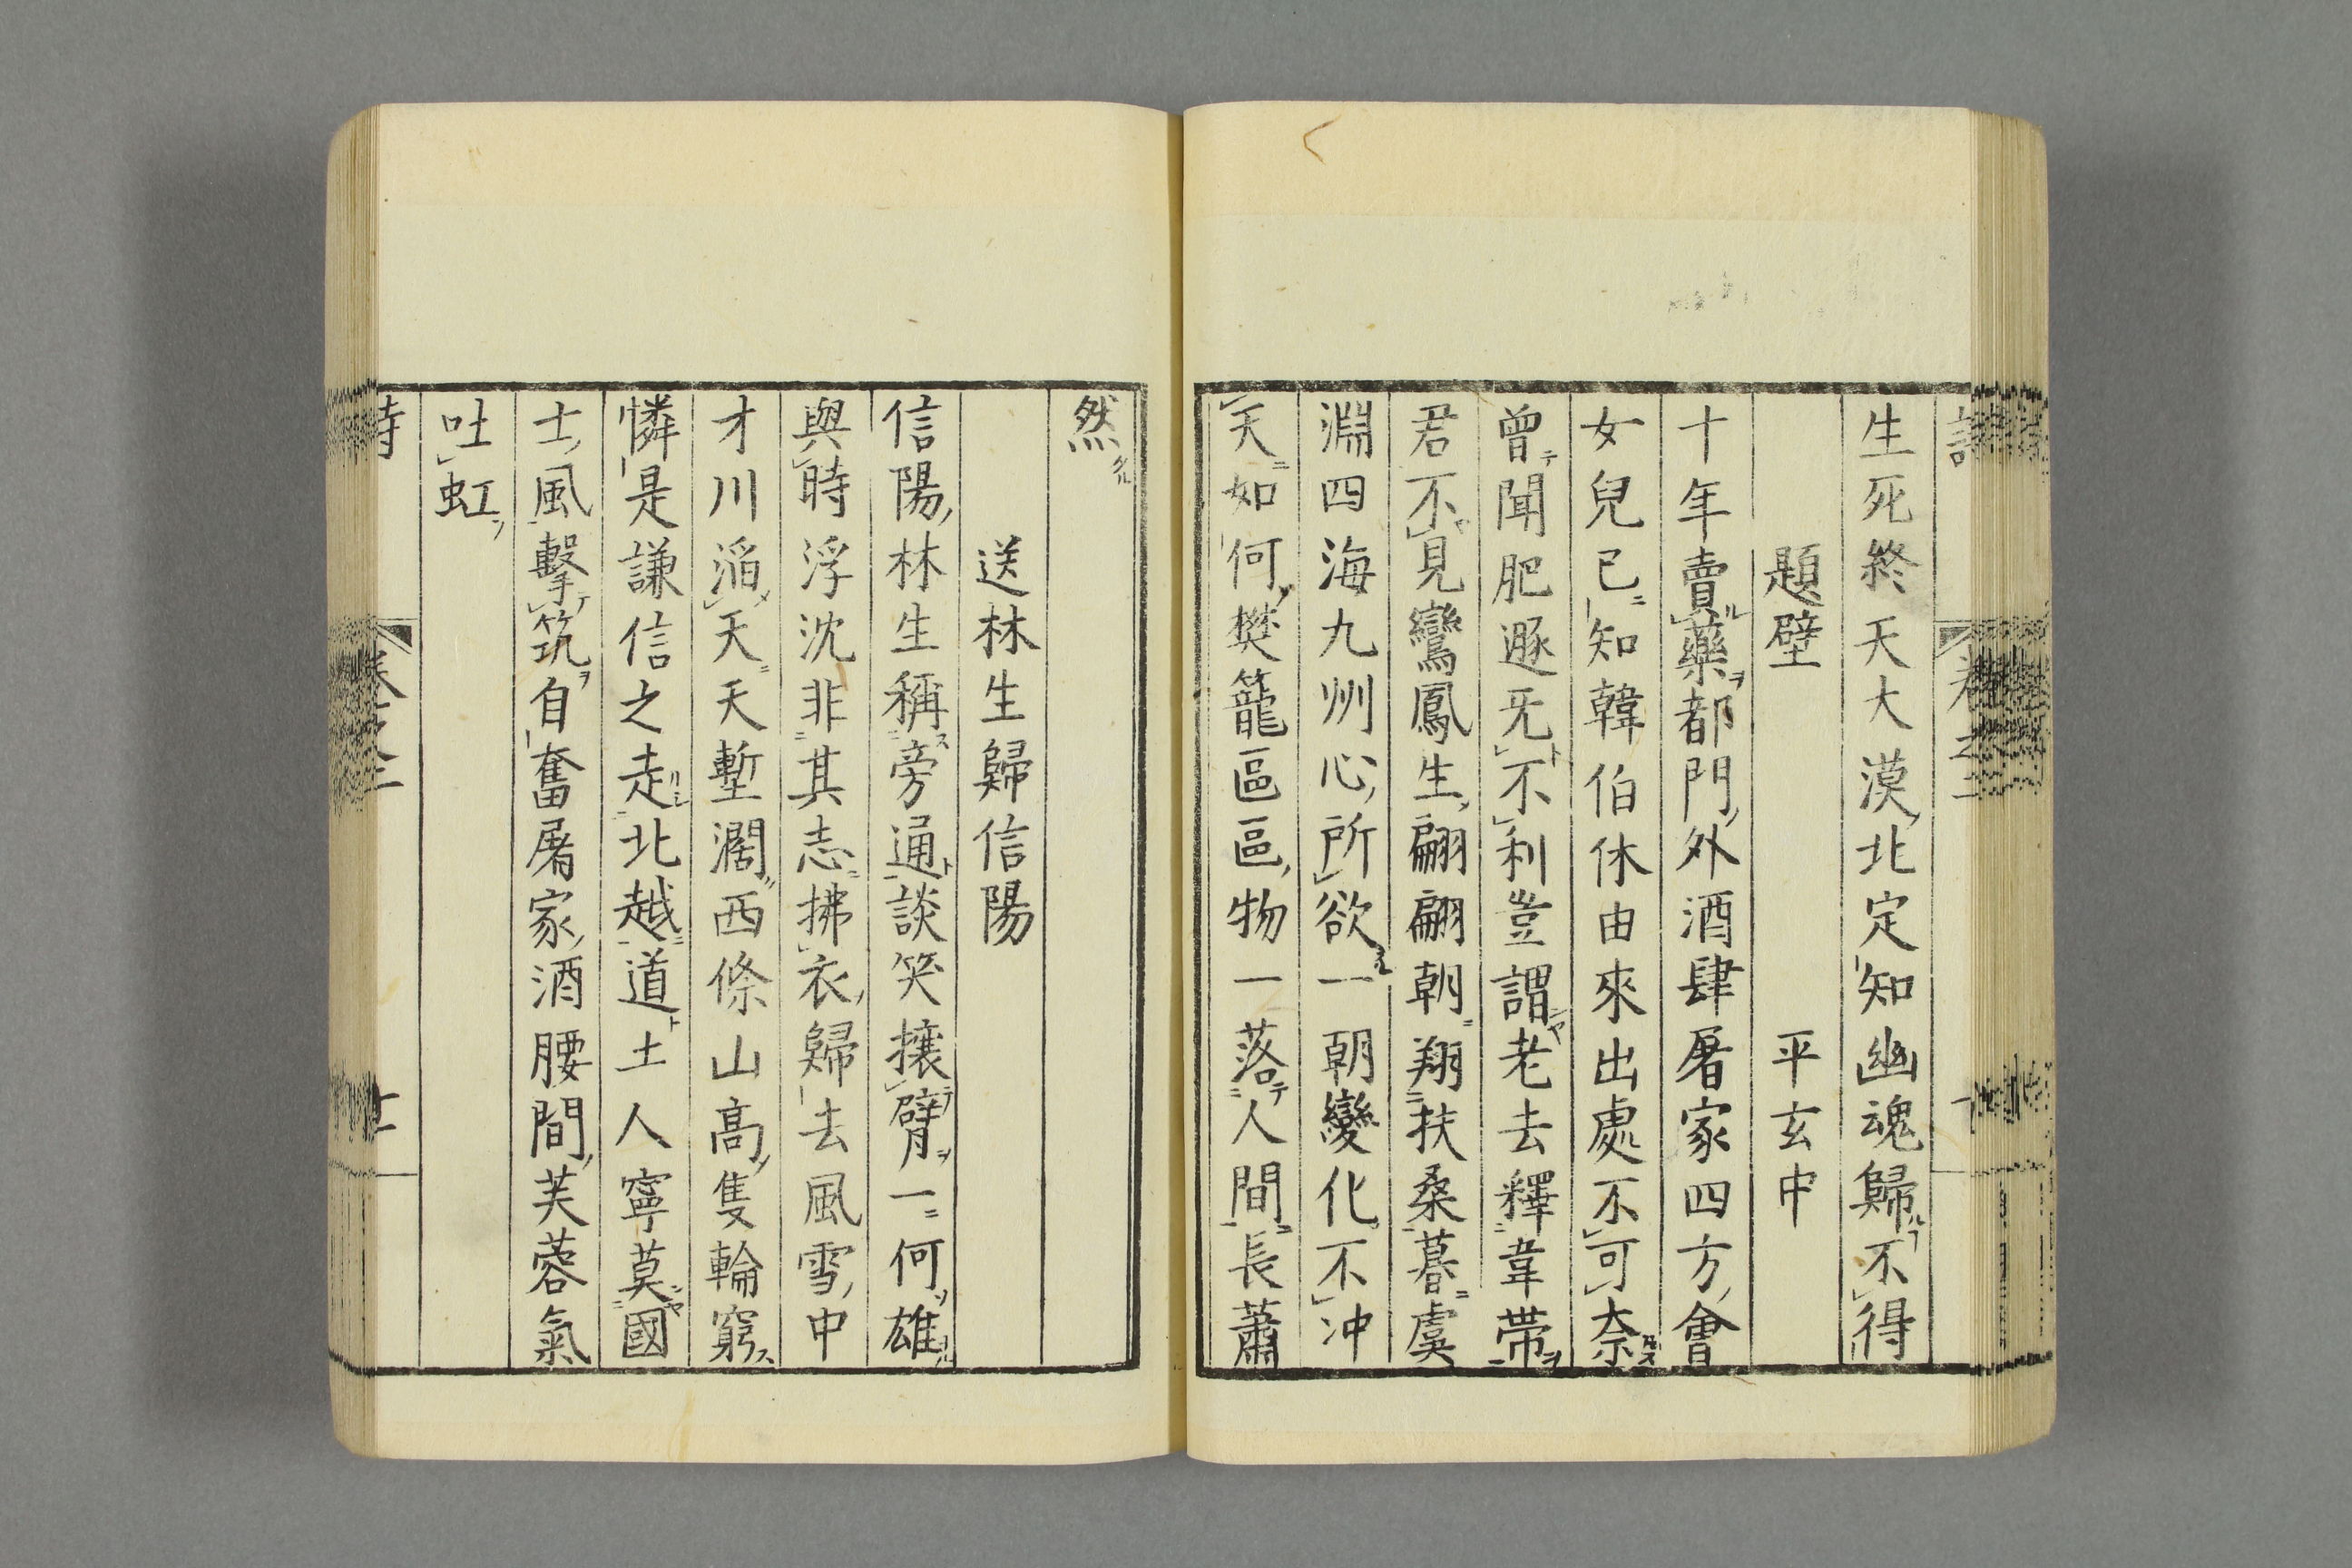 生死終天大漠北定知幽魂歸不得
題壁　平玄中
十年賣藥都門外酒肆屠家四方會
女兒已知韓伯休由來出處不可奈
曾聞肥遯旡不利豈謂老去釋韋帶
君不見鸞鳳生翩翩朝翔扶桑暮虞
淵四海九州心所欲一朝變化不冲
天如何樊籠區區物一落人間長蕭
然
送林生歸信陽
信陽林生稱旁通談笑攘臂一何雄
與時浮沈非其志拂衣歸去風雪中
才川滔天天塹濶西條山高隻輪窮
憐是謙信之走北越道土人寧莫國
士風擊筑自奮屠家酒腰間芙蓉氣
吐虹